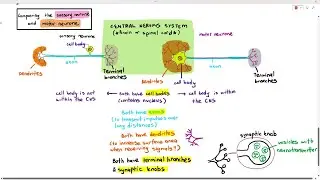 Comparing the sensory neurone
and motor neurone:
CENTRAL NERVOUS SYSTEM
(brain or spinal cord)
sensory neurone
motor neurone
cell body
axon
axon
Dendrites
Terminal
branches
Dendrites
cell body
Terminal
branches
cell body is not
within the CNS
both have cell bodies
(contains nucleus)
cell body is within
the CNS
Both have axons
(to transmit impulses over
long distances)
Both have dendrites
(to increase surface area
when receiving signals)
Both have terminal branches
& synaptic knobs
synaptic knob
vesicles with
neurotransmitter